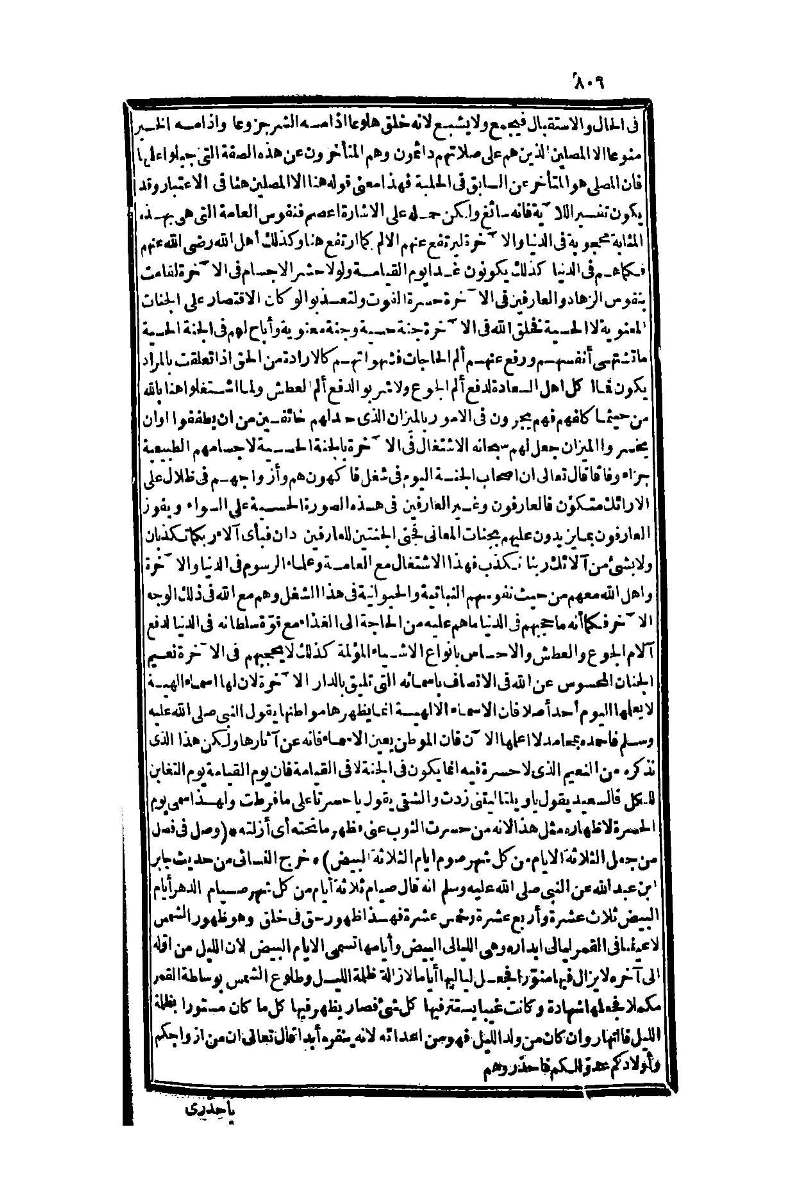 ٨٠٩
فى الحال والاستقبال فيجمع ولا يشبع لانه خلق هلوعا اذا مسه الشر جزوعا واذا مسه الخير
منوعا الا المصلين الذين هم على صلاتهم دائمون وهم المتأخرون عن هذه الصفة التى جبلوا عليها
فان المصلى هو المتأخر عن السابق فى الحلبة فهذا معنى قوله هنا الا المصلين هنا فى الاعتبار وقد
يكون تفسير اللآية فانه سائغ ولكن حمله على الاشارة اعصم فنفوس العامة التى هى بهذه
المثابة محجوبة فى الدنيا والآخرة ليرتفع عنهم الالم كما ارتفع هنا وكذلك أهل الله رضى الله عنهم
فكما هم فى الدنيا كذلك يكونون غدا يوم القيامة ولولا حشر الاجسام فى الآخرة لقامت
بنفوس الزهاد والعارفين فى الآخرة حسرة الفوت ولتعذبوا لو كان الاقتصار على الجنات
المعنوية لا الحسية فخلق الله فى الآخرة جنة حسية وجنة معنوية وأباح لهم فى الجنة الحسية
ما تشتهى أنفسهم ورفع عنهم ألم الحاجات فشهواتهم كالارادة من الحق اذا تعلقت بالمراد
يكون فما أكل اهل السعادة لدفع ألم الجوع ولا شربوا لدفع ألم العطش ولما اشتغلوا هنا بالله
من حيث ما كلفهم فهم يجرون فى الامور بالميزان الذى حد لهم خائفين من ان يطففوا اوان
يخسروا الميزان جعل لهم سبحانه الاشتغال فى الآخرة بالجنة الحسية لاجسامهم الطبيعية
جزاء وفاقا قال تعالى ان اصحاب الجنة اليوم فى شغل فاكهون هم وأزواجهم فى ظلال على
الارائك متكؤن فالعارفون وغير العارفين فى هذه الصورة الحسية على السواء ويفوز
العارفون بما يزيدون عليهم بجنات المعانى فجنى الجنتين للعارفين دان فبأى آلاء ربكما تكذبان
ولا بشئ من آلائك ربنا نكذب فهذا الاشتغال مع العامة وعلماء الرسوم فى الدنيا والآخرة
واهل الله معهم من حيث نفوسهم النباتية والحيوانية فى هذا الشغل وهم مع الله فى ذلك الوجه
الآخر فكما أنه ما حجبهم فى الدنيا ما هم عليه من الحاجة الى الغذاء مع قوة سلطانه فى الدنيا لدفع
آلام الجوع والعطش والاحساس بانواع الاشياء المؤلمة كذلك لا يحجبهم فى الآخرة نعيم
الجنان المحسوس عن الله فى الاتصاف باسمائه التى تليق بالدار الآخرة لان لها اسماء الهية
لا يعلمها اليوم أحد أصلا فان الاسماء الالهية انما يظهرها مواطنها يقول النبى صلى الله عليه
وسلم فاحمده بمحامد لا اعلمها الآن فان الموطن يعين الاسماء فانه عن آثارها ولكن هذا الذى
نذكره من النعيم الذى لا حسرة فيه انما يكون فى الجنة لا فى القيامة فان يوم القيامة يوم التغابن
للكل فالسعيد يقول ياويلتا ليتنى زدت والشقى يقول ياحسرتا على ما فرطت ولهذا سمى يوم
الحسرة لاظهاره مثل هذا لانه من حسرت الثوب عنى فظهر ما تحته أى أزلته * (وصل فى فصل
من جعل الثلاثة الايام من كل شهر صوم ايام الثلاثة البيض) * خرج النسائى من حديث جابر
ابن عبد الله عن النبى صلى الله عليه وسلم انه قال صيام ثلاثة أيام من كل شهر صيام الدهر أيام
البيض ثلاث عشرة وأربع عشرة وخمس عشرة فهذا ظهور حق فى خلق وهو ظهور الشمس
لاعيننا فى القمر ليالى ابداره وهى الليالى البيض وأيامها تسمى الايام البيض لان الليل من اوله
الى آخره لا يزال فيها منورا فجعل لياليها أياما لازالة ظلمة الليل وطلوع الشمس بوساطة القمر
مكملا فجعلها شهادة وكانت غيبا يستتر فيها كل شئ فصار يظهر فيها كل ما كان مستورا بظلمة
الليل فالنهار وان كان من ولد الليل فهو من اعدائه لانه ينفره أبدا قال تعالى ان من أزواجكم
وأولادكم عدوا لكم فاحذروهم
ياحذرى